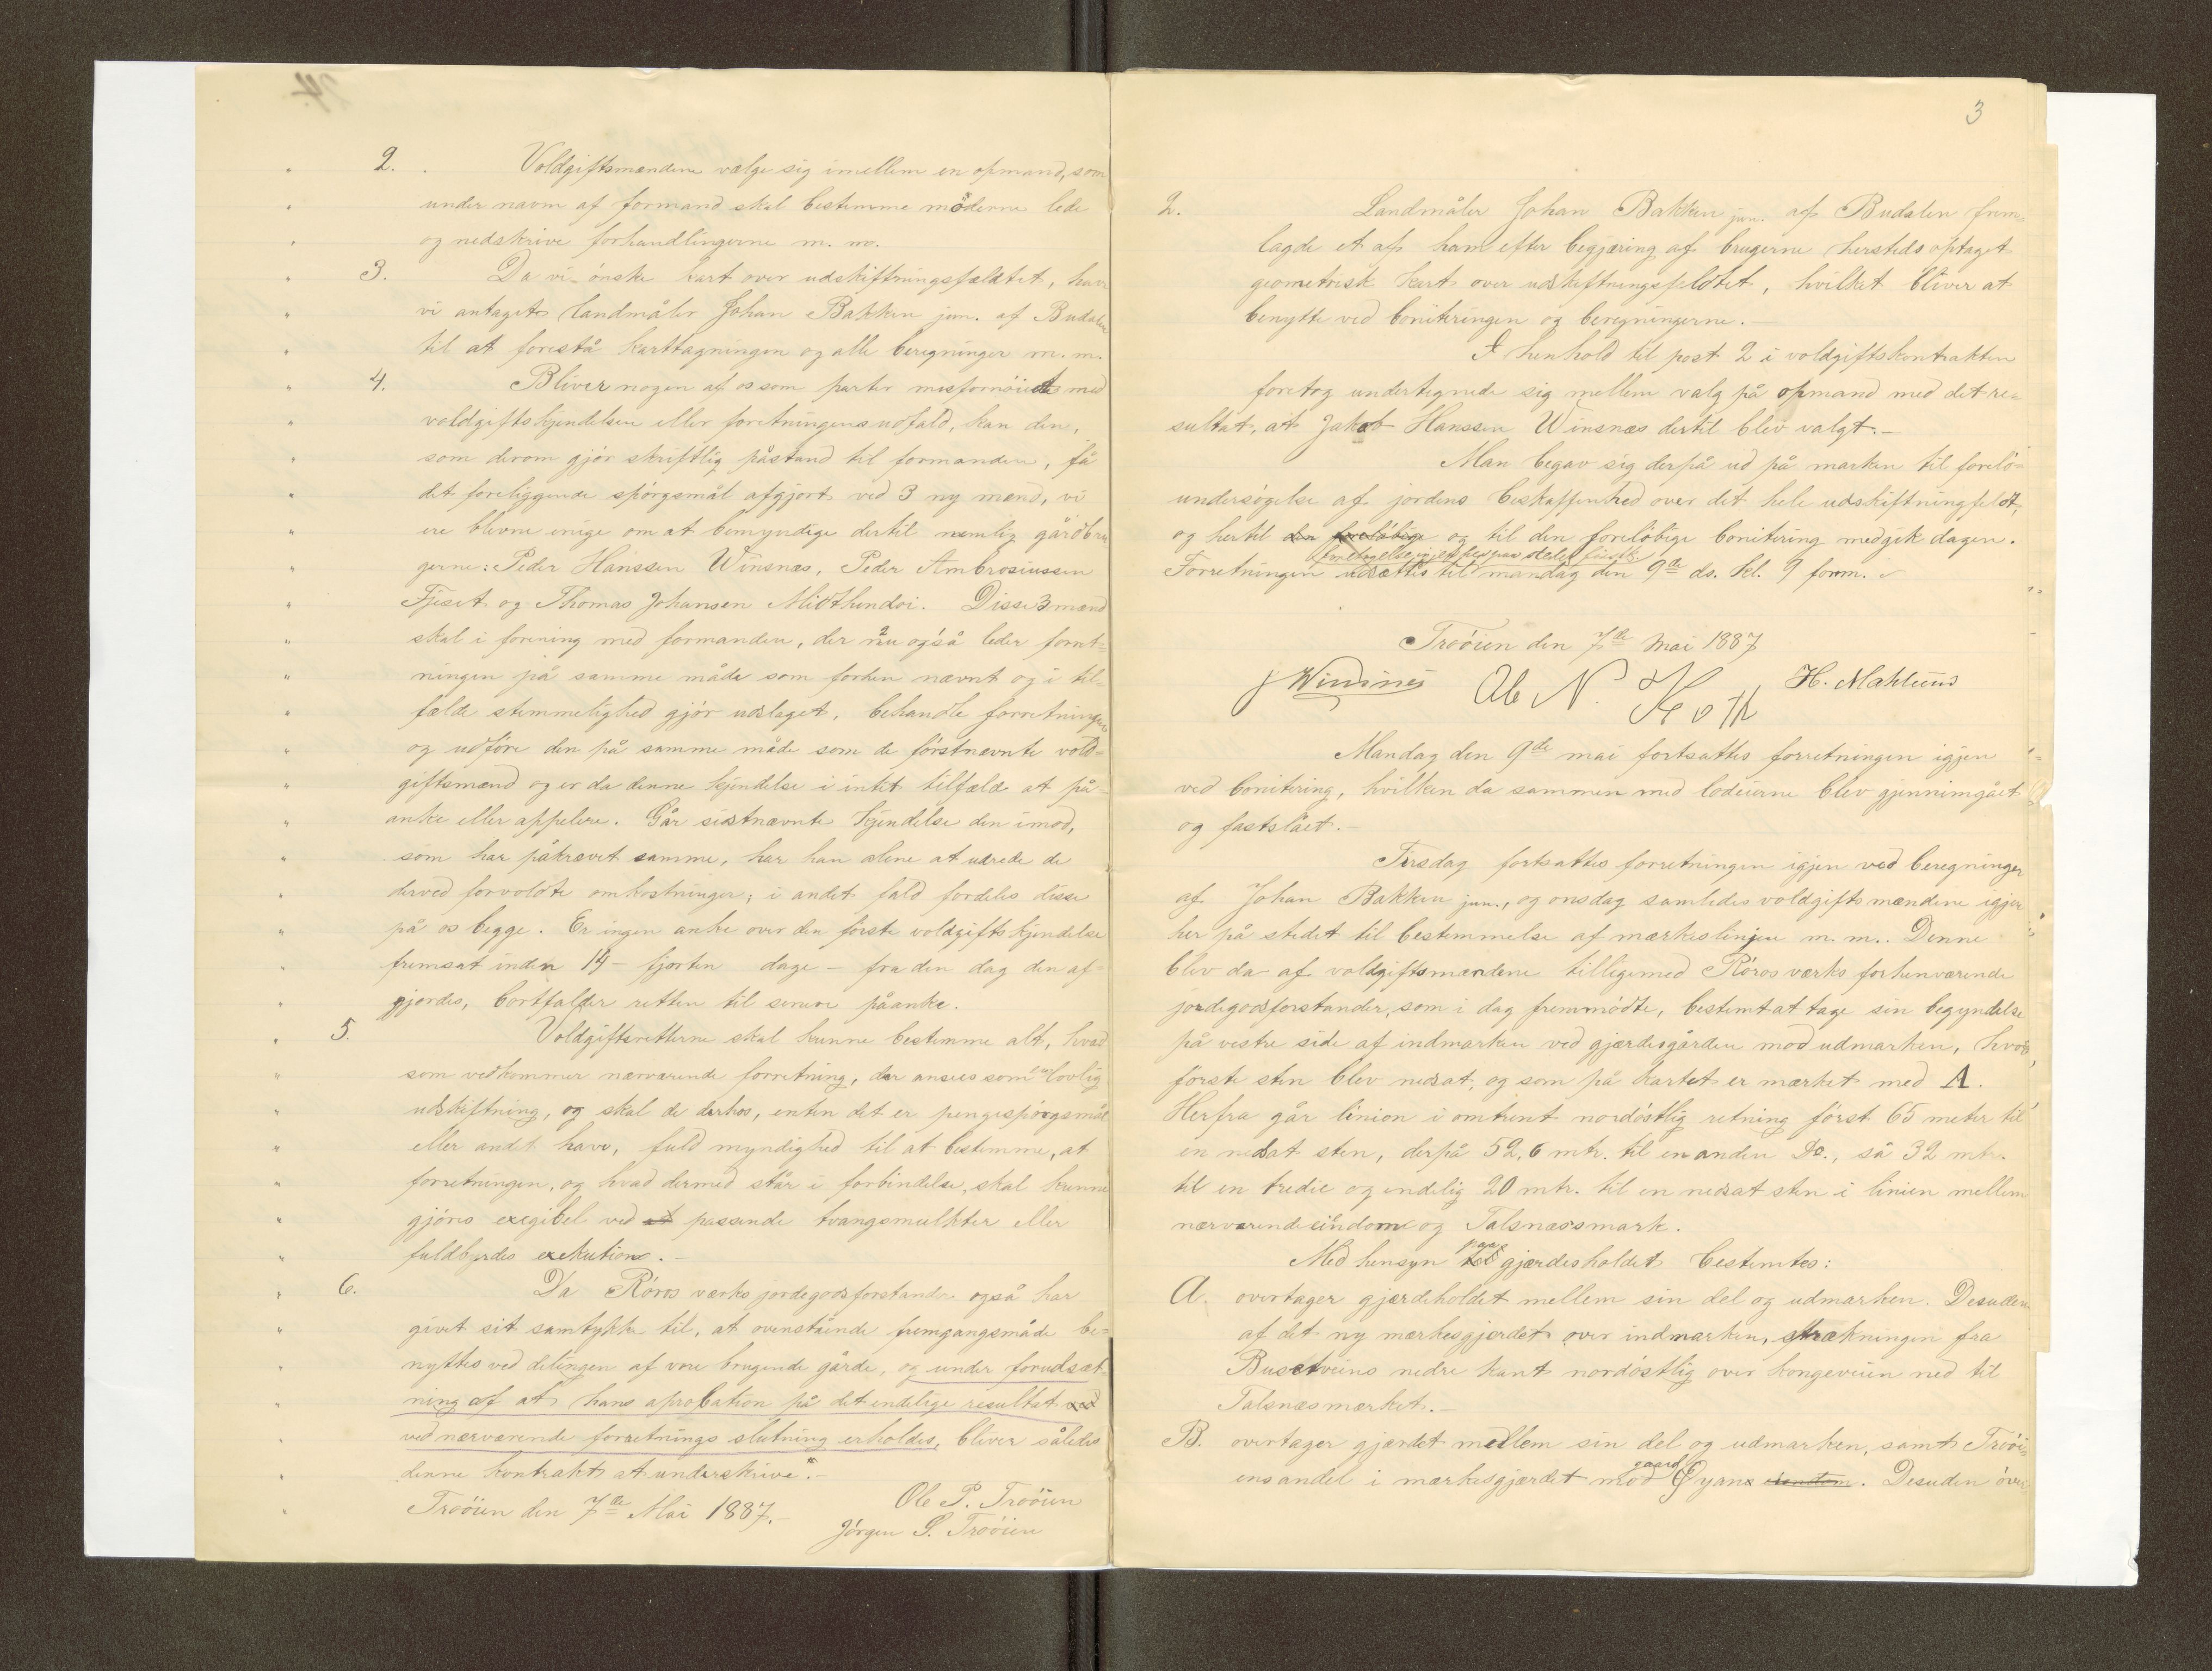 2. Voldgiftsmændene vælge sig imellem en opmand, som
under navn af formand skal bestemme möderne lede
og nedskrive forhandlingerne m. m.
3. Da vi önske kart over udskiftningsfældtet, have
vi antaget landmåler Johan Bakken jun. af Budalen
til at forestå karttagningen og alle beregninger m. m.
4. Bliver nogen af os som parter misfornöiet med
voldgiftskjendelsen eller forretningens udfald, kan den,
som derom gjör skriftlig påstand til formanden, få
det foreliggende spörgsmål afgjort ved 3 ny mænd, vi
ere blevne enige om at bemyndige dertil nemlig gårdbru
gerne: Peder Hanssen Winsnæs, Peder Ambrosiussen
Fjeset og Thomas Johansen Midthendoi. Disse 3 mænd
skal i forening med formanden, der nu også leder forret-
ningen på samme måde som forhen nævnt og i til-
fælde stemmelighed gjör udslaget, behandle forretningen
og udföre den på samme måde som de förstnævnte vold-
giftsmænd og er da denne kjendelse i intet tilfælde at på-
anke eller appelere. Går sidstnævnte kjendelse den imod,
som har påkrævet samme, har han alene at udrede de
derved forvoldte omkostninger; i andet fald fordeles disse
på os begge. Er ingen anke over den förste voldgiftskjendelse
fremsat inden 14 - fjorten dage - fra den dag den af-
gjordes, bortfalder retten til senere påanke.
5. Voldgiftsretterne skal kunne bestemme alt, hvad
som vedkommer nærværende forretning, der ansees som lovlig
udskiftning, og skal de derhos, enten det er pengespörgsmål
eller andet have, fuld myndighed til at bestemme, at
forretningen, og hvad dermed står i forbindelse, skal kunne
gjöres exegibel ved passende tvangsmulkter eller
fuldbyrdes exekution.-
6. Da Röros værks jordegodsforstander også har
givet sit samtykke til, at ovenstående fremgangsmåde be-
nyttes ved delingen af vore brugende gårde, og under forudsæt-
ning af at hans aprobation på det endelige resultat
ved nærværende forretnings slutning erholdes, bliver således
denne kontrakt at underskrive".-
Troöien den 7de Mai 1887.-
Ole P. Troöien
Jörgen S. Troöien
3
2. Landmåler Johan Bakken jun. af Budalen frem-
lagde et af ham efter begjæring af brugerne hersteds optaget
geometrisk kart over udskiftningsfeldtet, hvilket bliver at
benytte ved boniteringen og beregningerne.-
I henhold til post 2 i voldgiftskontrakten
foretog undertegnede sig mellem valg på opmand med det re-
sultat, at Jakob Hanssen Winsnæs dertil blev valgt.-
Man begav sig derpå ud på marken til forelö-
undersögelse af jordens beskaffenhed over det hele udskiftningfeldt,
og hertil den foreløbige og til den forelöbige bonitering medgik dagen.
Forretningen udsættes til mandag den 9de ds. kl. 9 form.
Troöien den 7de Mai 1887
J Winsnes Ole N. Koth H. Mahluus
Mandag den 9de mai fortsattes forretningen igjen
ved bonitering, hvilken da sammen med lodeierne blev gjennemgået
og fastslået.-
Tirsdag fortsattes forretningen igjen ved beregninger
af Johan Bakken jun., og onsdag samledes voldgiftsmændene igjen
her på stedet til bestemmelse af mærkeslinjen m. m.. Denne
blev da af voldgiftsmændene tilligemed Röros værks forhenværende
jordegodsforstander, som i dag fremmödte, bestemt at tage sin begyndelse
på vestre side af indmarken ved gjærdesgården mod udmarken, hvor
förste sten blev nedsat, og som på kartet er mærket med A.
Herfra går linien i omtrent nordöstlig retning först 65 meter til
en nedsat sten, derpå 52,6 mtr. til en anden Do., så 32 mtr.
til en tredie og endelig 20 mtr. til en nedsat sten i linien mellem
nærværende eiendom og Talsnæssmark.
Med hensyn paa gjærdesholdet bestemtes:
A. overtager gjærdeholdet mellem sin del og udmarken. Desuden
af det ny mærkesgjerdet over indmarken, strækningen fra
Busetveiens nedre kant nordöstlig over kongeveien ned til
Talsnæsmærket.-
B. overtager gjærdet mellem sin del og udmarken, samt Tröi-
ens andel i mærkesgjærdet mod gaard Öyan. Desuden över